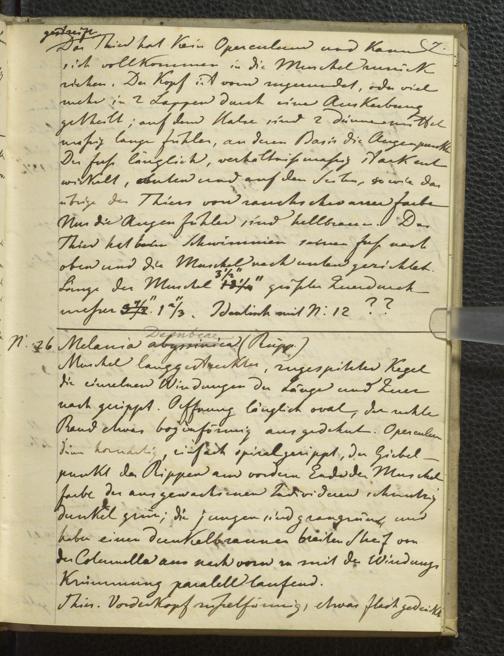 gestreift
7.
Das Thier hat kein Operculum und kann
sich vollkommen in die Muschel zurück
ziehen. Der Kopf ist vorn zugerundet, oder viel
mehr in 2 Lappen durch eine Auskerbung
getheilt; auf dem Halse sind 2 dünne mittel
mäßig lange fühler, an deren Basis die Augenpunkte
Der fuß länglich, verhältnißmäßig stark ent
wickelt, unten und auf den Seiten, so wie das
übrige des Thiers von rauchschwarzer farbe
Nur die Augen fühler sind hellbraun. Das
Thier hat beim Schwimmen seinen fuß nach
oben und die Muschel nach unten gerichtet.
Länge der Muschel 3½''' größter Querdurch
messer 1⅔. Identisch mit N. 12 ??
N. 26 Melania abyssinica (Rupp.)
Muschel langgestreckter, zugespitzter Kegel
die einzelnen Windungen der Länge und Quer
nach gerippt. Oeffnung länglich oval, der rechte
Rand etwas bogenförmig ausgedehnt. Operculum
dünn hornartig, einfach spiralgerippt, der Giebel-
punkt der Rippen am vordern Ende der Muschel
farbe der ausgewachsenen Individuen schmutzig
dunkel grün; die jungen sind graugrün und
haben einen dunkelbraunen breiten Streif von
der Columella aus nach vorn zu mit der Windungs
Krümmung paralell laufend.
Thier. Vorderkopf rüsselförmig, etwas flach gedrückt